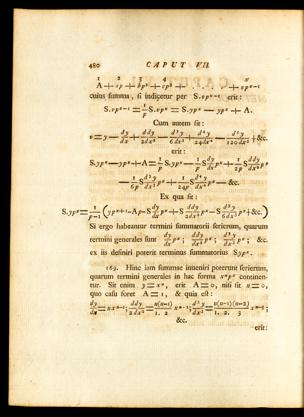 480 CAPUT VII.
1 2 3 4 n
A + vp + vp² + vp³ + . . . . + vp^{n-1}
cuius summa, si indicetur per S.vp^{n-1} erit:
S.vp^{n-1} = \frac{1}{p} S.vp^n = S.yp^n - yp^n + A.
Cum autem sit:
v = y - \frac{dy}{dx} + \frac{ddy}{2dx^2} - \frac{d^3y}{6dx^3} + \frac{d^4y}{24dx^4} - \frac{d^5y}{120dx^5} + &c.
erit:
S.yp^n - yp^n + A = \frac{1}{p} S.yp^n - \frac{1}{p} S\frac{dy}{dx}p^n + \frac{1}{2p} S\frac{ddy}{dx^2}p^n
- \frac{1}{6p} S\frac{d^3y}{dx^3}p^n + \frac{1}{24p} S\frac{d^4y}{dx^4}p^n - &c.
Ex qua fit:
S.yp^n = \frac{1}{p-1} (yp^{n+1} - Ap - S\frac{dy}{dx}p^n + S\frac{ddy}{2dx^2}p^n - S\frac{d^3y}{6dx^3}p^n + &c.)
Si ergo habeantur termini summatorii serierum, quarum
termini generales sunt \frac{dy}{dx}p^n; \frac{ddy}{dx^2}p^n; \frac{d^3y}{dx^3}p^n; &c.
ex iis definiri poterit terminus summatorius Syp^n.
169. Hinc iam summae inveniri poterunt serierum,
quarum termini generales in hac forma x^n p^x continen-
tur. Sit enim y = x^n, erit A = 0, nisi sit n = 0,
quo casu foret A = 1, & quia est:
\frac{dy}{dx} = nx^{n-1}; \frac{ddy}{2dx^2} = \frac{n(n-1)}{1. 2} x^{n-2}; \frac{d^3y}{6dx^3} = \frac{n(n-1)(n-2)}{1. 2. 3} x^{n-3};
&c.
erit: